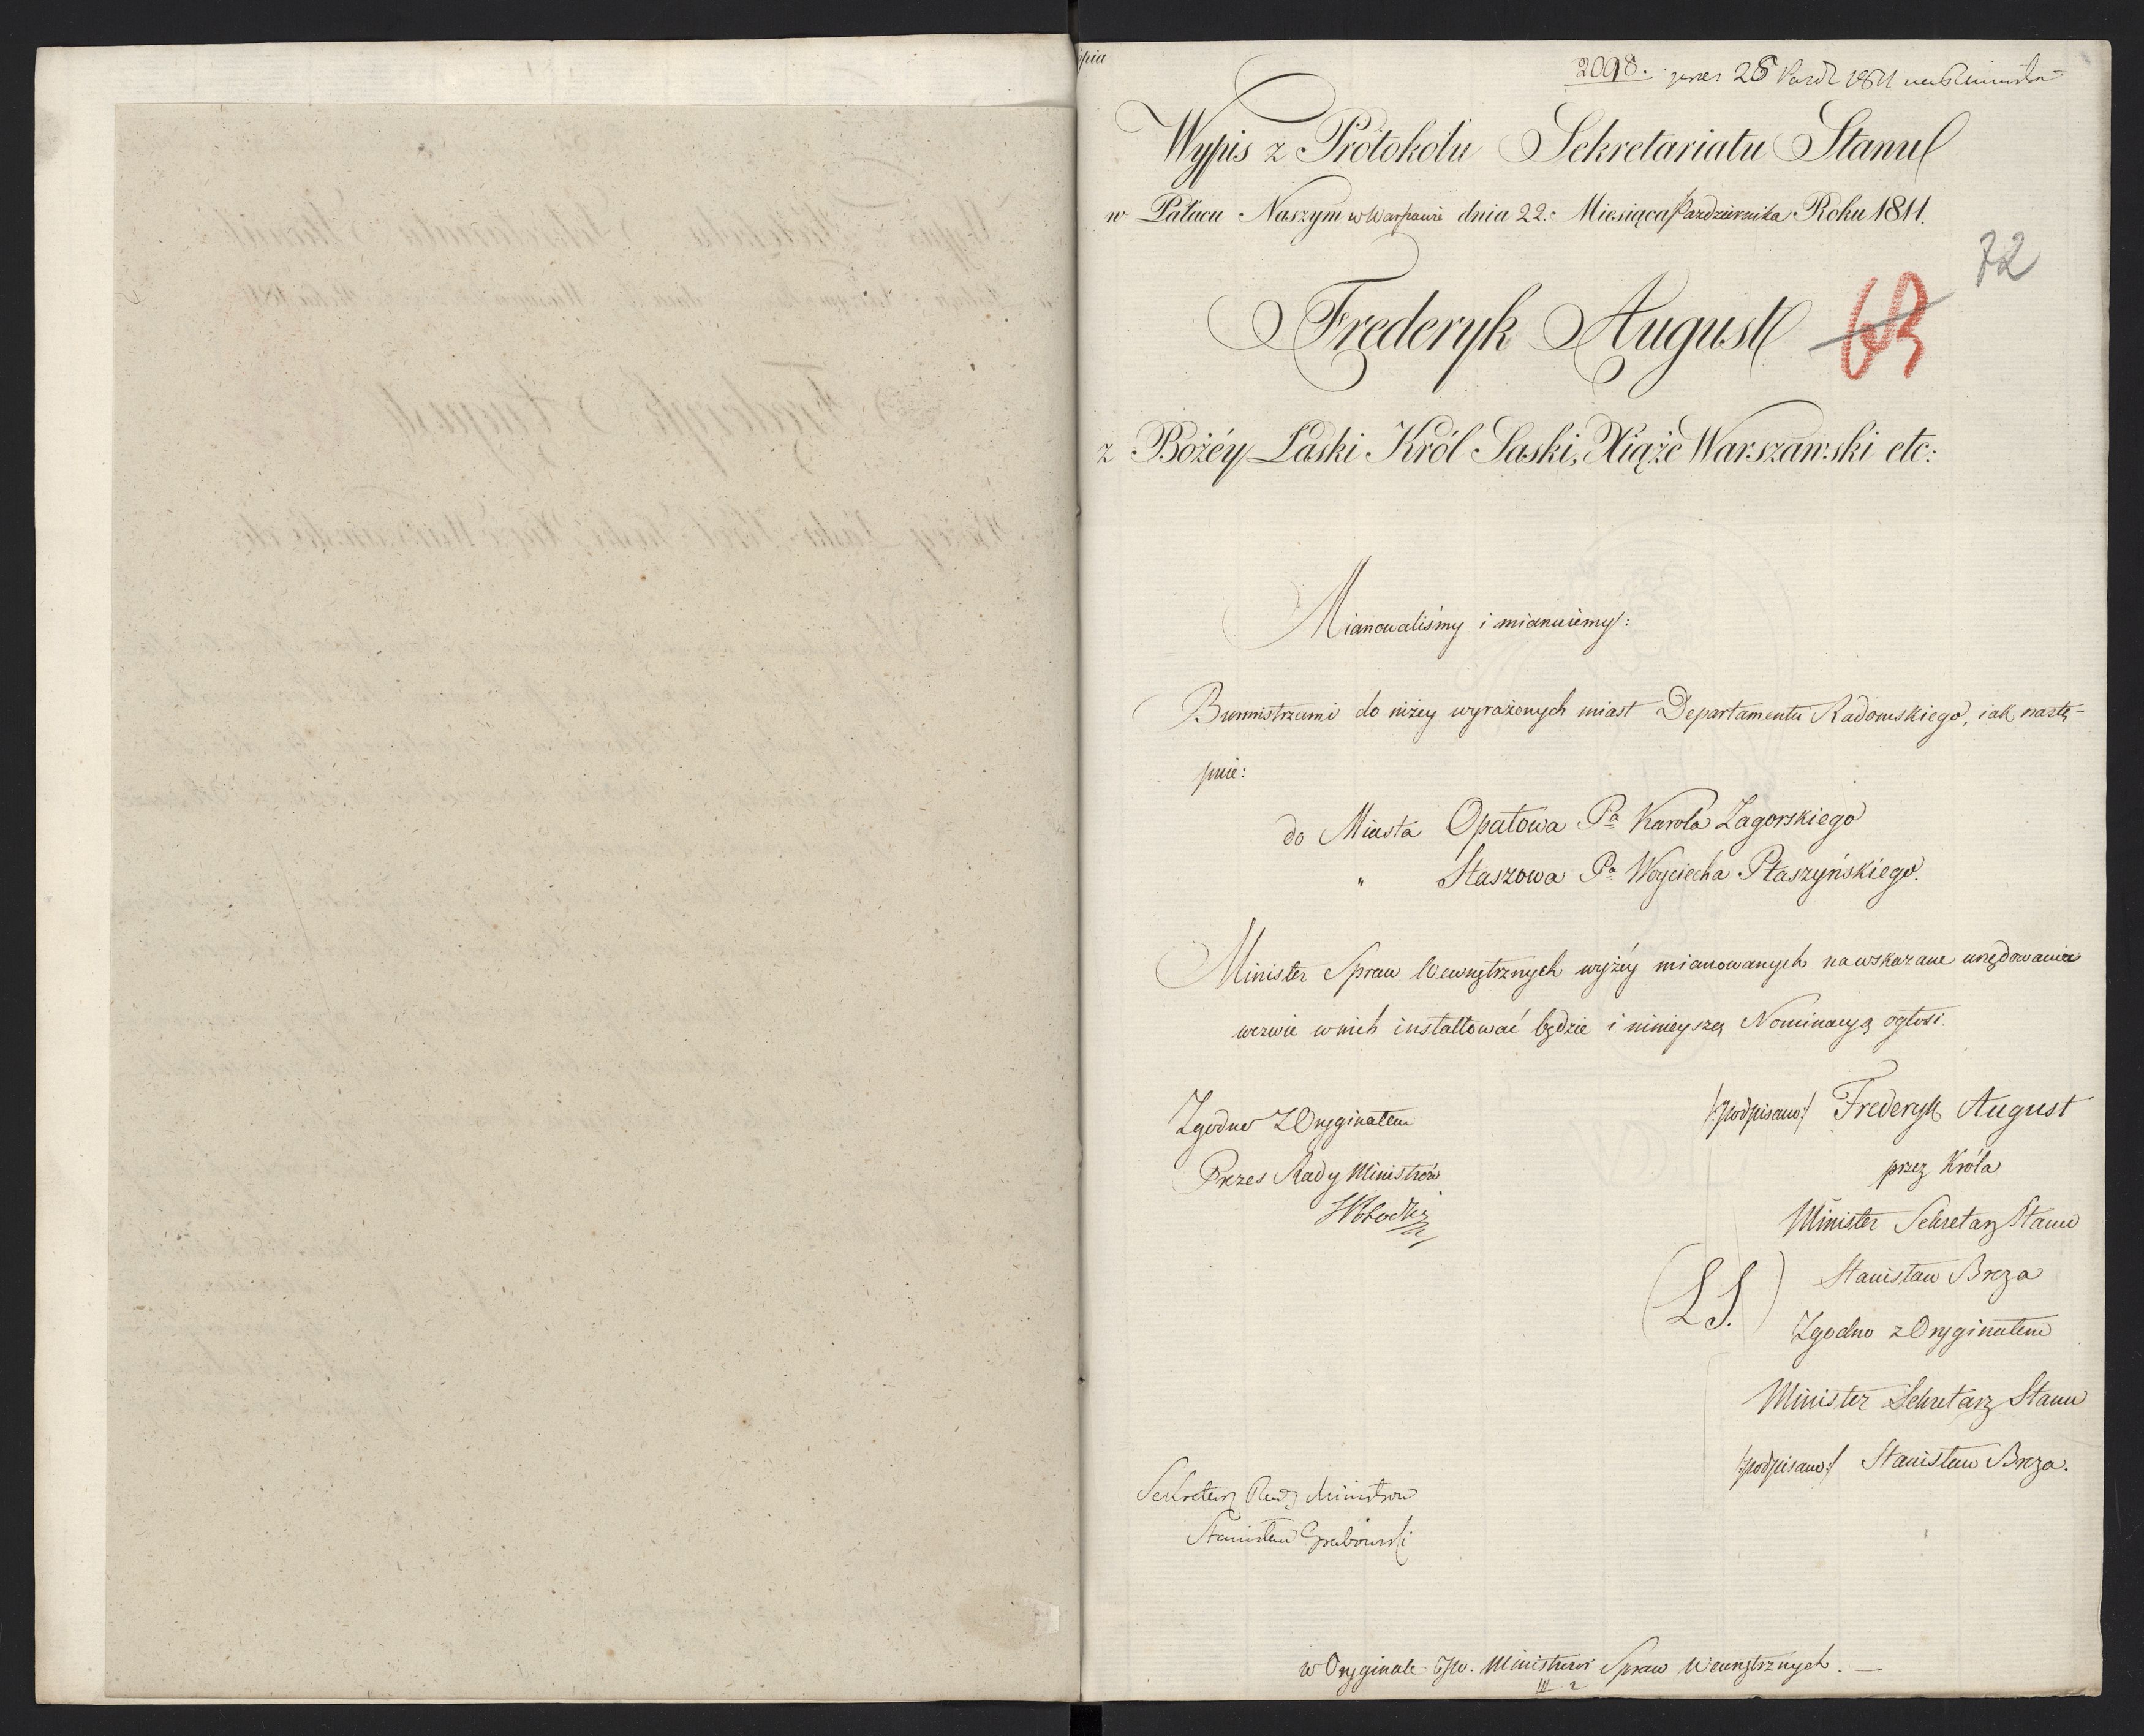 pia
2098. 28 1811
Wypis z Protokołu Sekretariatu Stanu
w Pałacu Naszym w Warszawie dnia 22. Miesiąca Pazdziernika Roku 1811.
72
63
Frederyk August
z Bożéy Łaski Król Saski, Xiąże Warszawski etc:
Mianowaliśmy i mianuiemy:
Burmistrzami do niżey wyrażonych miast Departamentu Radomskiego, iak nastę-
pnie:
do Miasta Opatowa Pa Karola Zagorskiego
" Staszowa Pa Woyciecha Płaszyńskiego.
Minister Spraw Wewnętrznych wyżéy mianowanych na wskazane urzędowania
wezwie w nich installować będzie i ninieyszą Nominacyą ogłosi.
Zgodno z Oryginałem
Prezes Rady Ministrów
/:podpisano:/ Frederyk August
przez Króla
Minister Sekretarz Stanu
(LS.) Stanisław Breza
Zgodno z Oryginałem
Minister Sekretarz Stanu
/:podpisano:/ Stanisław Breza.
Sekretarz Rady Ministrow
Stanisław Grabowski
w Oryginale JW. Ministrowi Spraw Wewnętrznych. —